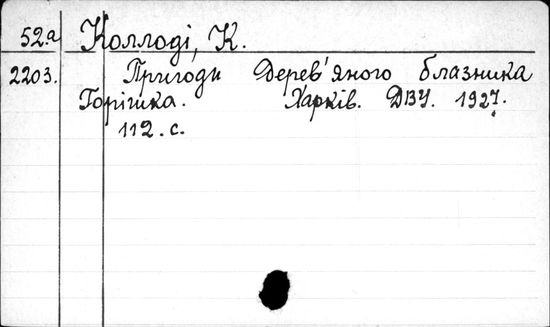 52.a Коллоді, К.
2203. Пригоди Дерев'яного блазника
Горішка. Харків. ДВУ. 1927.
112. с.